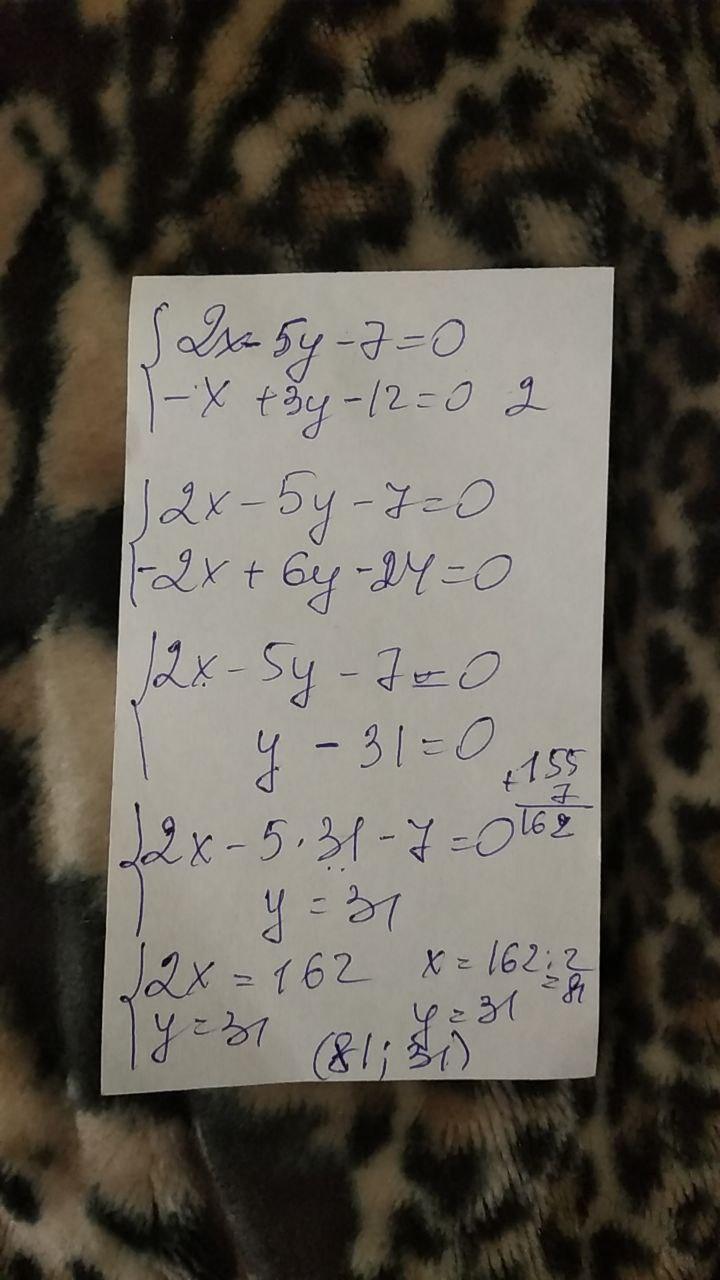 2x - 5y - 7 = 0
-x + 3y - 12 = 0 2
2x - 5y - 7 = 0
-2x + 6y - 24 = 0
2x - 5y - 7 = 0
y - 31 = 0
+155
7
162
2x - 5·31 - 7 = 0
y = 31
2x = 162 x = 162:2
= 81
y = 31 y = 31
(81; 31)